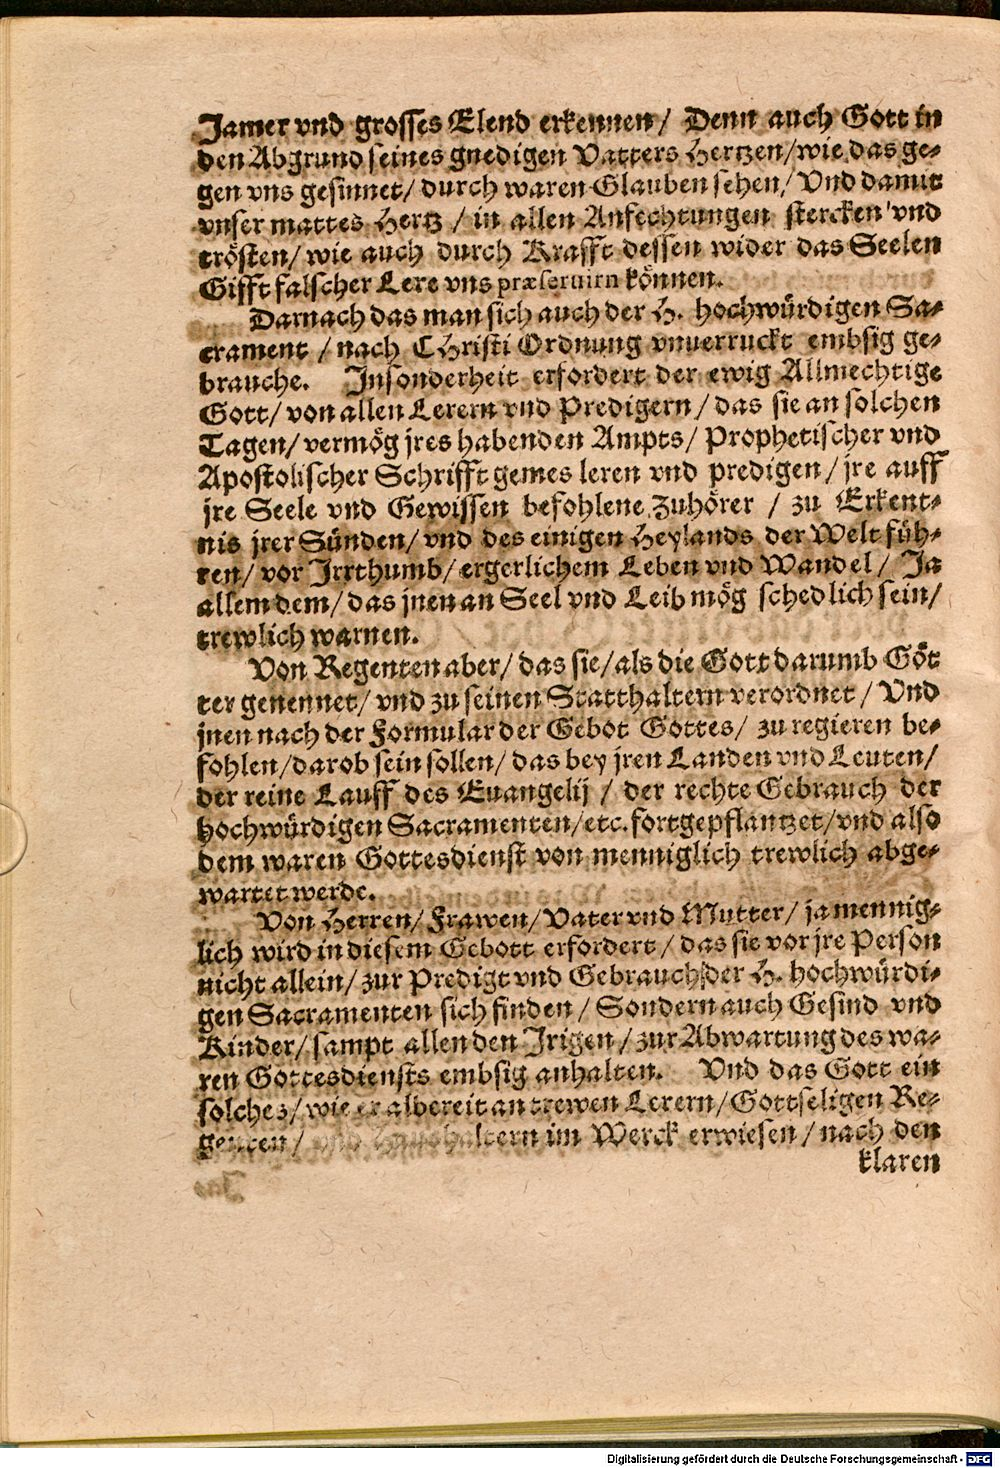 Jamer vnd grosses Elend erkennen/ Denn auch Gott in
den Abgrund seines gnedigen Vatters Hertzen/wie das ge-
gen vns gesinnet/ durch waren Glauben sehen/ Vnd damit
vnser mattes Hertz / in allen Anfechtungen stercken vnd
trösten/ wie auch durch Krafft dessen wider das Seelen
Gifft falscher Lere vns præseruirn können.
Darnach das man sich auch der H. hochwürdigen Sa-
crament / nach CHristi Ordnung vnuerruckt embsig ge-
brauche. Insonderheit erfordert der ewig Allmechtige
Gott/ von allen Lerern vnd Predigern/ das sie an solchen
Tagen/ vermög jres habenden Ampts/ Prophetischer vnd
Apostolischer Schrifft gemes leren vnd predigen/ jre auff
jre Seele vnd Gewissen befohlene Zuhörer / zu Erkent-
nis jrer Sünden/ vnd des einigen Heylands der Welt füh-
ren/ vor Irrthumb/ ergerlichem Leben vnd Wandel/ Ja
allem dem/ das jnen an Seel vnd Leib mög schedlich sein/
trewlich warnen.
Von Regenten aber/ das sie/ als die Gott darumb Göt
ter genennet/ vnd zu seinen Statthaltern verordnet/ Vnd
jnen nach der Formular der Gebot Gottes/ zu regieren be-
fohlen/darob sein sollen/ das bey jren Landen vnd Leuten/
der reine Lauff des Euangelij / der rechte Gebrauch der
hochwürdigen Sacramenten/etc. fortgepflantzet/vnd also
dem waren Gottesdienst von menniglich trewlich abge-
wartet werde.
Von Herren/ Frawen/ Vater vnd Mutter/ ja mennig-
lich wird in diesem Gebott erfordert/ das sie vor jre Person
nicht allein/ zur Predigt vnd Gebrauch der H. hochwürdi-
gen Sacramenten sich finden/ Sondern auch Gesind vnd
Kinder/ sampt allen den Jrigen/ zur Abwartung des wa-
ren Gottesdiensts embsig anhalten. Vnd das Gott ein
solches/ wie er albereit an trewen Lerern/ Gottseligen Re-
genten/ vnd Haushaltern im Werck erwiesen/ nach den
klaren
Digitalisierung gefördert durch die Deutsche Forschungsgemeinschaft - DFG